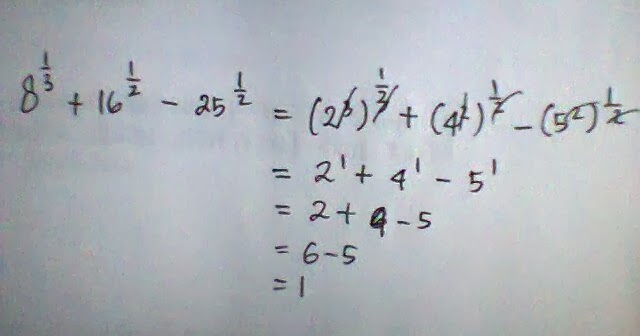 8^{1/3} + 16^{1/2} - 25^{1/2} = (2^3)^{1/3} + (4^2)^{1/2} - (5^2)^{1/2}
= 2^1 + 4^1 - 5^1
= 2 + 4 - 5
= 6 - 5
= 1